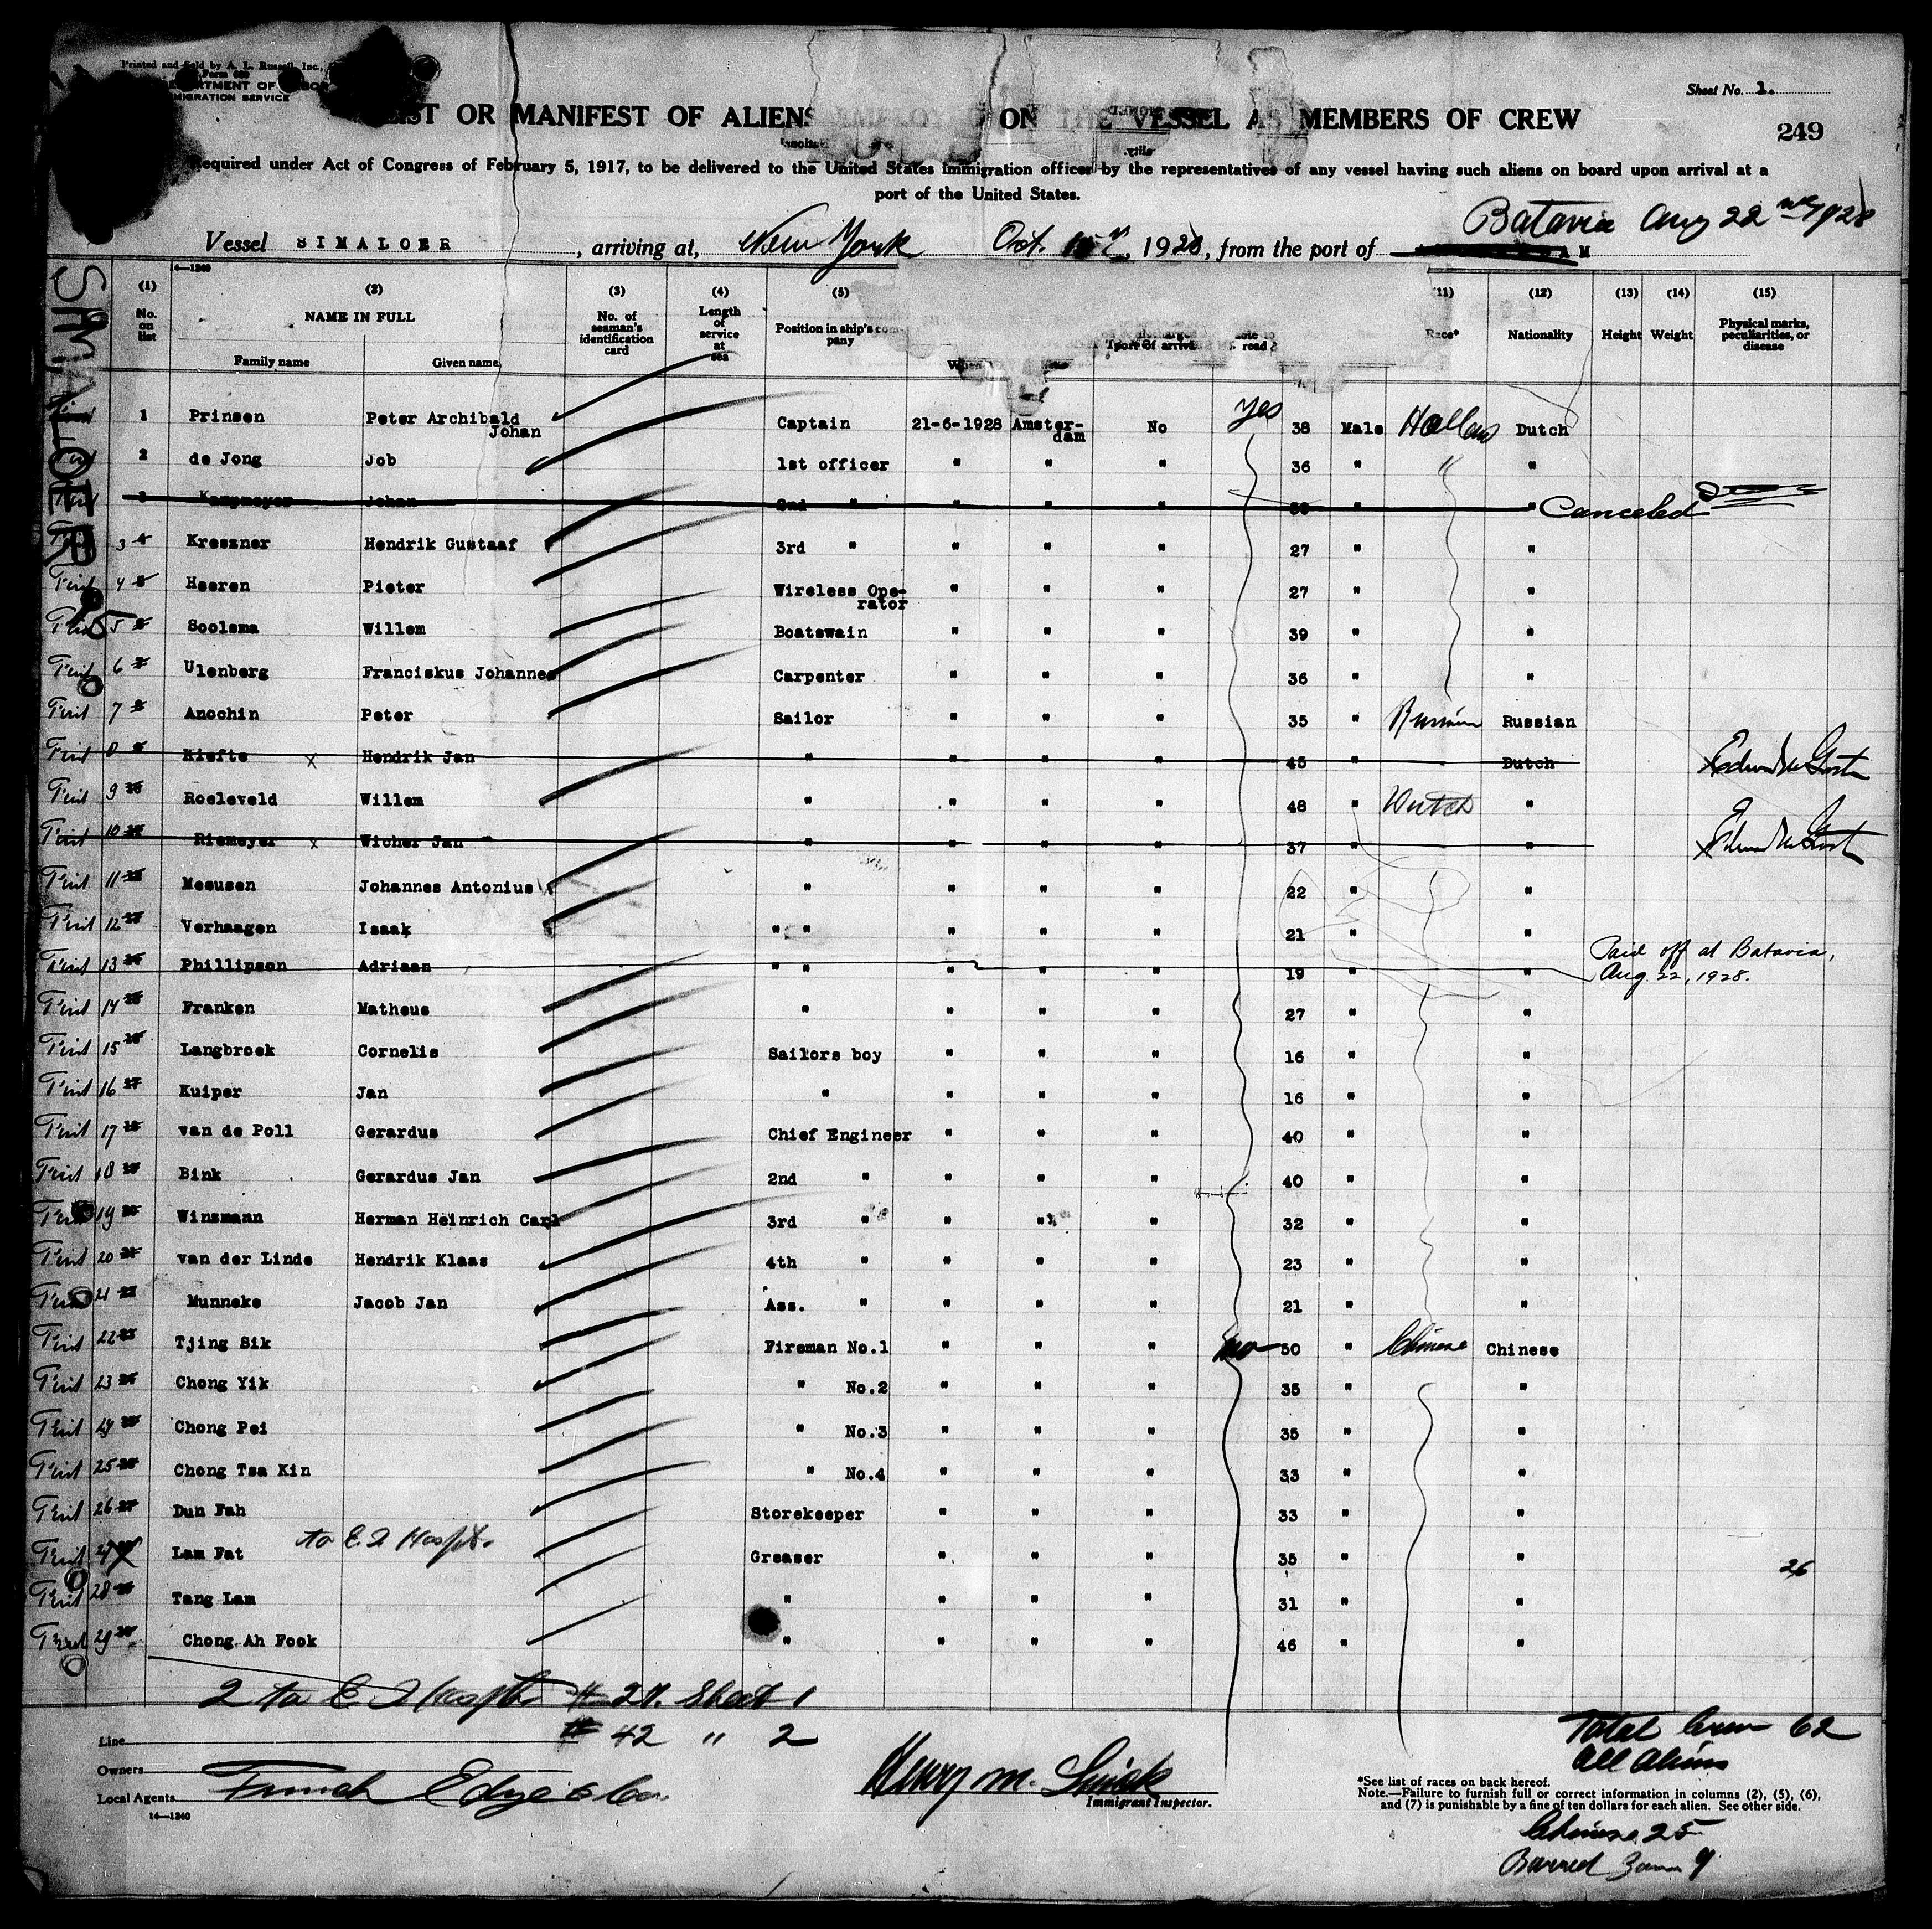 Printed and Sold by A. L. Russell, Inc.,
Form 680
DEPARTMENT OF LABOR
IMMIGRATION SERVICE
Sheet No. 1.
LIST OR MANIFEST OF ALIENS ON THE VESSEL AS MEMBERS OF CREW
249
Required under Act of Congress of February 5, 1917, to be delivered to the United States immigration officer by the representatives of any vessel having such aliens on board upon arrival at a
port of the United States.
Batavia Aug 22nd 1928
Vessel SIMALOER, arriving at, New York Oct. 1928, from the port of
SIMALOER
14—1240
(1) (2) (3) (4) (5) (11) (12) (13) (14) (15)
No. on list NAME IN FULL No. of seaman's identification card Length of service at sea Position in ship's company Race* Nationality Height Weight Physical marks, peculiarities, or disease
Family name Given name When
1 Prinsen Peter Archibald Johan Captain 21-6-1928 Amsterdam No Yes 38 Male Holland Dutch
2 de Jong Job 1st officer " " " 36 " " "
3 Kampmeyer Johan 2nd " " " " " " Canceled
3 4 Kreszner Hendrik Gustaaf 3rd " " " " 27 " "
4 5 Heeren Pieter Wireless Ope-rator " " " 27 " "
5 6 Soolsma Willem Boatswain " " " 39 " "
6 7 Ulenberg Franciskus Johannes Carpenter " " " 36 " "
7 8 Anochin Peter Sailor " " " 35 " Russian Russian
8 9 Kiefte x Hendrik Jan " " " " 45 " Dutch
9 10 Roeleveld Willem " " " " 48 " Dutch "
10 11 Riemeyer x Wicher Jan " " " " 37 " "
11 12 Meeusen Johannes Antonius " " " " 22 " "
12 13 Verhaagen Isaak " " " " " 21 " "
13 14 Phillipson Adriaan " " " " " 19 " " Paid off at Batavia,
Aug. 22, 1928.
14 15 Franken Matheus " " " " 27 " "
15 16 Langbroek Cornelis Sailors boy " " " 16 " "
16 17 Kuiper Jan " " " " 16 " "
17 18 van de Poll Gerardus Chief Engineer " " " 40 " "
18 19 Bink Gerardus Jan 2nd " " " " 40 " "
19 20 Winzmann Herman Heinrich Carl 3rd " " " " 32 " "
20 21 van der Linde Hendrik Klaas 4th " " " " 23 " "
21 22 Munneke Jacob Jan Ass. " " " " 21 " "
22 23 Tjing Sik Fireman No.1 " " " no 50 " Chinese Chinese
23 24 Chong Yik " No.2 " " " 35 " "
24 25 Chong Pei " No.3 " " " 35 " "
25 26 Chong Tsa Kin " No.4 " " " 33 " "
26 27 Dun Fah Storekeeper " " " 33 " "
27 Lam Fat to E.I Hospt. Greaser " " " 35 " " 26
28 29 Tang Lam " " " " 31 " "
29 30 Chong Ah Fook " " " " 46 " "
2 to E I Hospt. # 27. Sheet 1
# 42 " 2
Line
Owners
Local Agents Funch Edye & Co.
14—1240
Henry M.
Immigrant Inspector.
Total Crew 62
All Aliens
*See list of races on back hereof.
Note.—Failure to furnish full or correct information in columns (2), (5), (6),
and (7) is punishable by a fine of ten dollars for each alien. See other side.
Chinese 25
Barred Zone 9